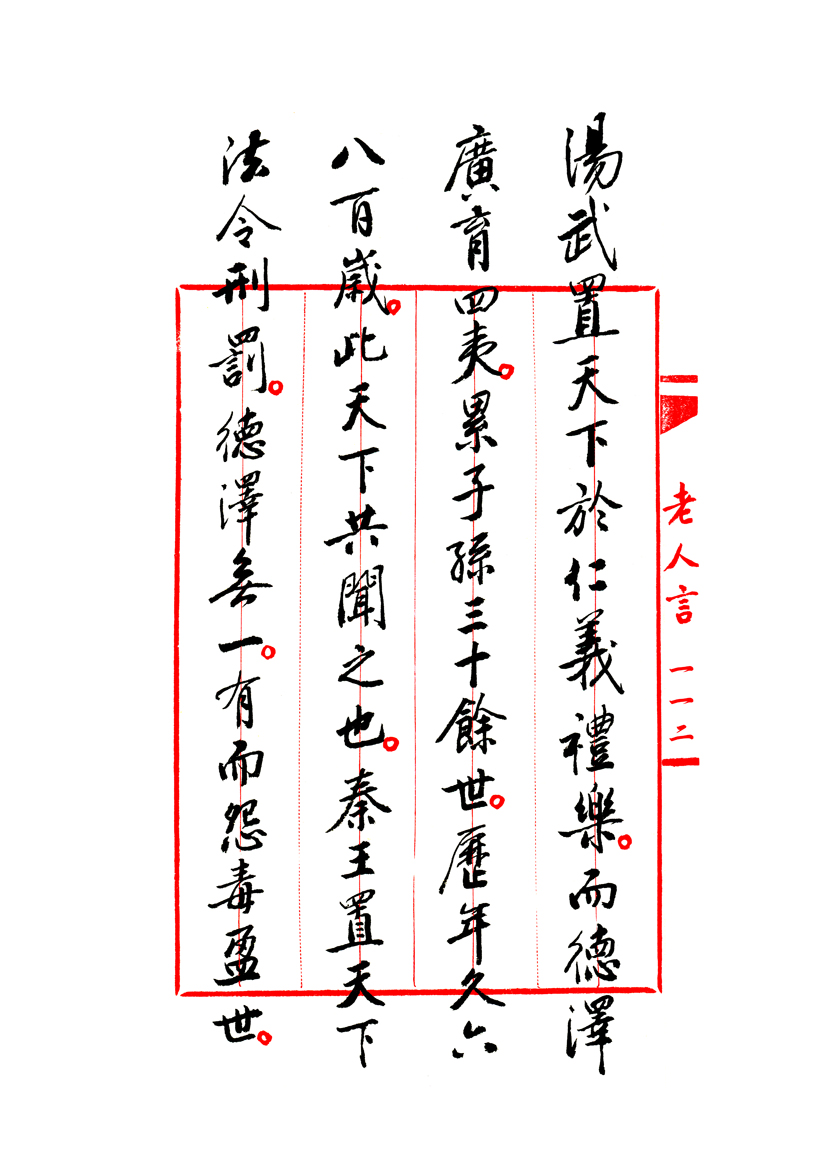 湯武置天下於仁義禮樂。而德澤
廣育四夷。累子孫三十餘世。歷年久六
八百歲。此天下共聞之也。秦王置天下
法令刑罰。德澤無一。有而怨毒盈世。
老人言 一一二